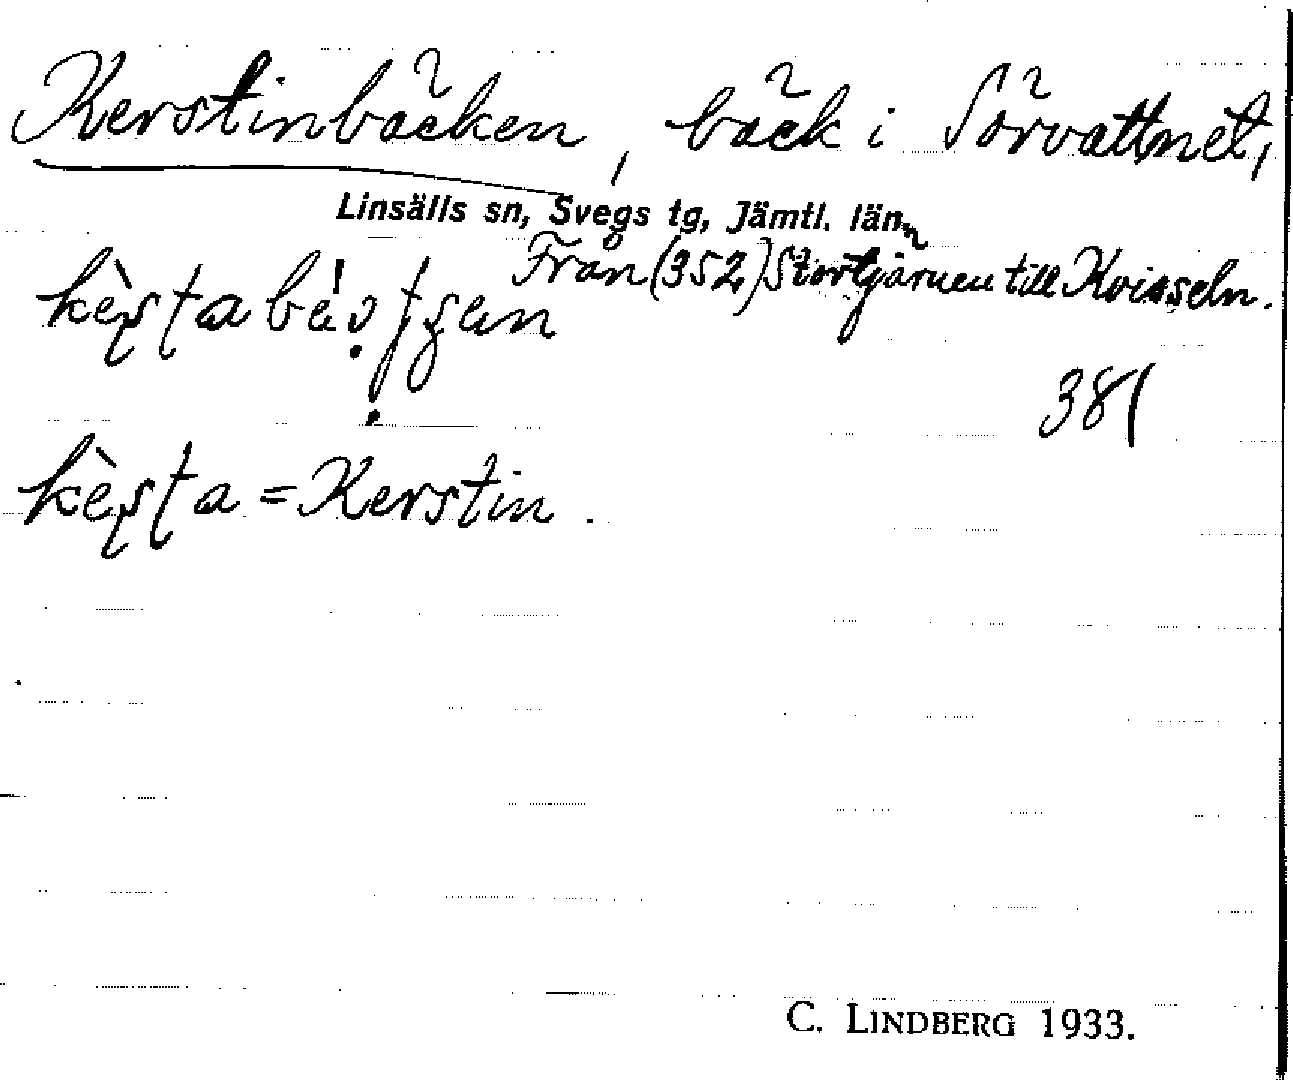 Kerstinbäcken, bäck i Sörvattnet,
Linsälls sn, Svegs tg, Jämtl. län.
Från (352) Stortjärnen till Kvisseln.
381
= Kerstin.
C. LINDBERG 1933.